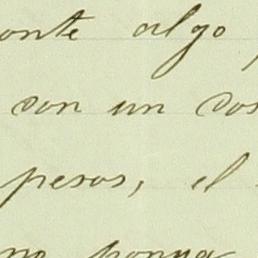 onte algo,
son un cos
pesos, el
no ponga